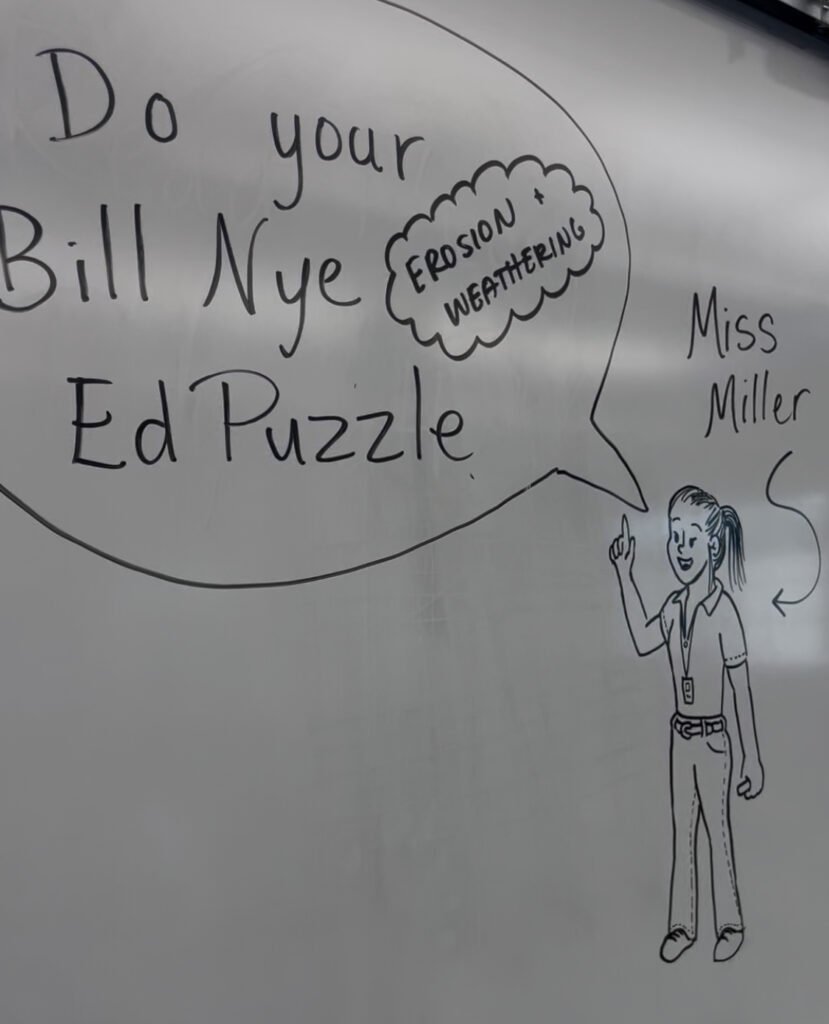 Do your
Bill Nye
EROSION +
WEATHERING
Ed Puzzle
Miss
Miller